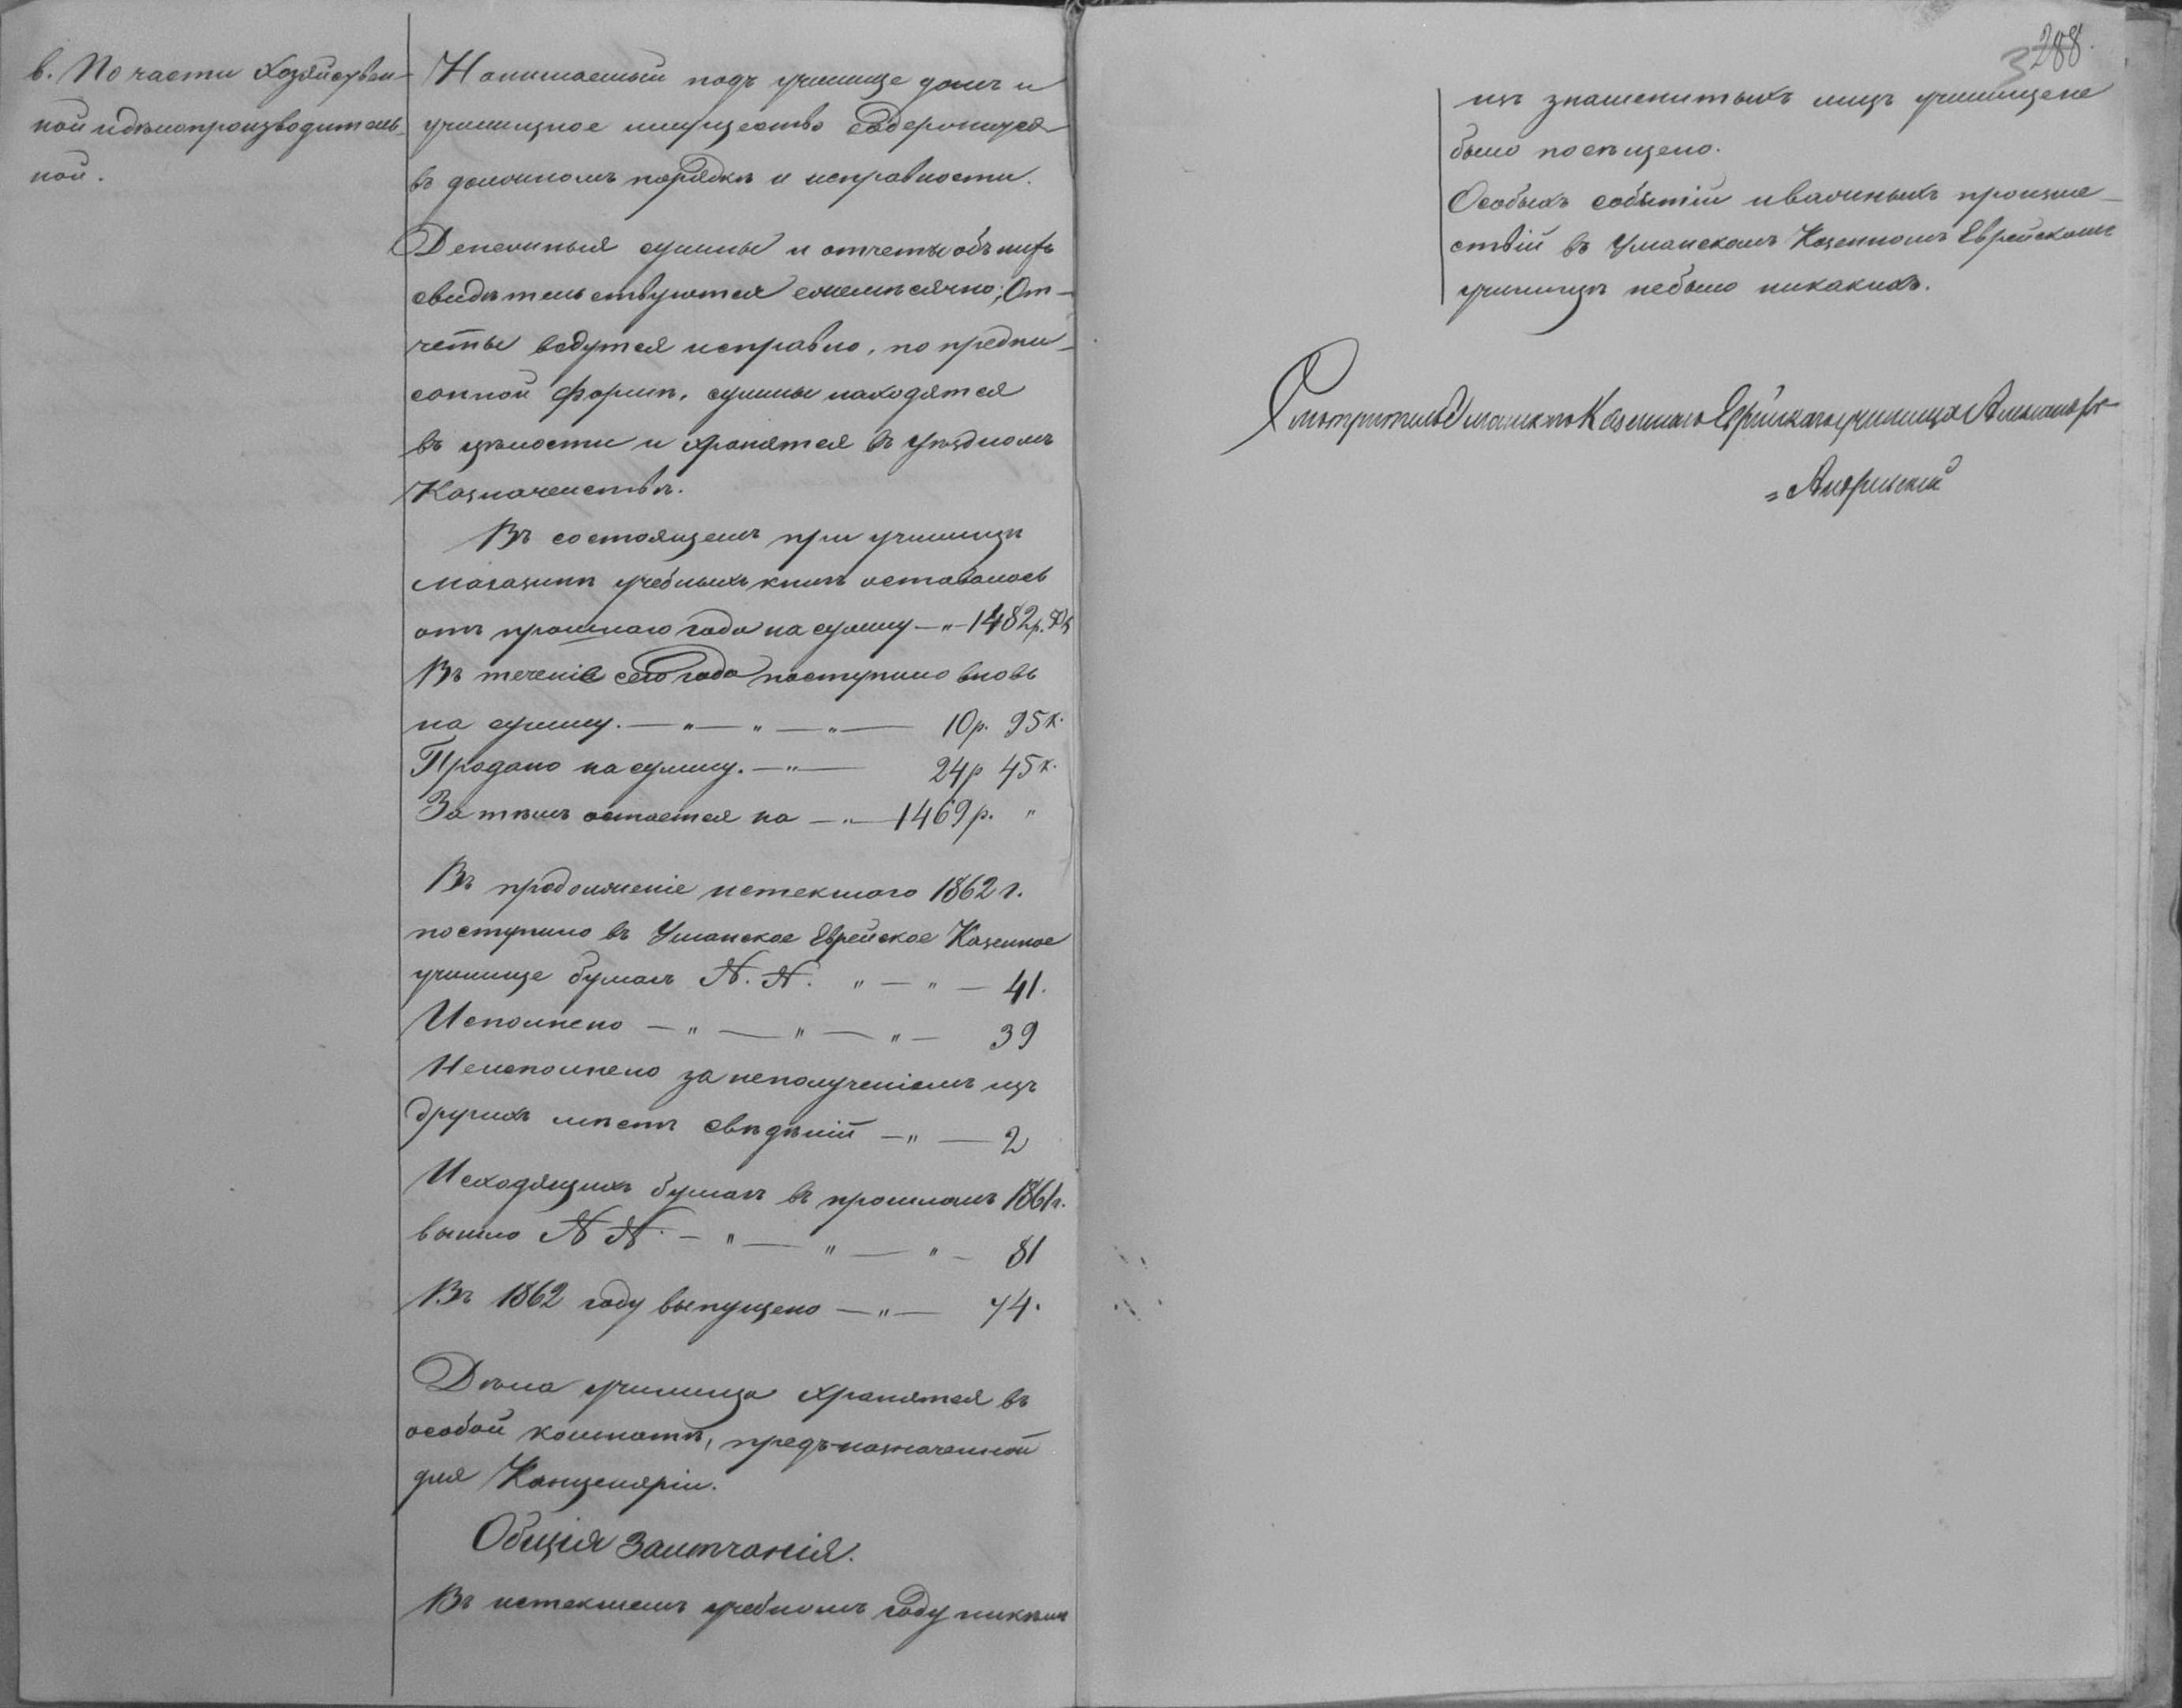 в. По части Хозяйствен-
ной и дѣлопроизводитель-
ной.
Нанимаемый подъ училище домъ и
училищное имущество содержится
въ должномъ порядкѣ и исправности.
Денежныя суммы и отчеты объ нихъ
свидѣтельствуются ежемѣсячно; От-
четы ведутся исправно, по предпи-
санной формѣ, суммы находятся
въ цѣлости и хранятся въ Уѣздномъ
Казначействѣ.
Въ состоящемъ при училищѣ
магазинѣ учебныхъ книгъ оставалось
отъ прошлаго года на сумму —"— 1482 р. 50 к
Въ теченіе сего года поступило вновь
на сумму. —"—"—"— 10 р. 95 к.
Продано на сумму. —"— 24 р 45 к.
За тѣмъ остается на —"— 1469 р. "
Въ продолженіе истекшаго 1862 г.
поступило въ Уманское Еврейское Казенное
училище бумагъ N. N. "—"— 41.
Исполнено —"—"—"— 39
Неисполнено за неполученіемъ изъ
другихъ мѣстъ свѣдѣній —"— 2
Исходящихъ бумагъ въ прошломъ 1861 г.
вышло N N. —"—"—"— 81
Въ 1862 году выпущено —"— 74.
Дѣла училища хранятся въ
особой комнатѣ, предъназначенной
для Канцеляріи.
Общія Замѣчанія.
Въ истекшемъ учебномъ году никѣмъ
288.
изъ знаменитыхъ лицъ училище не
было посѣщено.
Особыхъ событій и важныхъ происше-
ствій въ Уманскомъ Казенномъ Еврейскомъ
училищѣ не было никакихъ.
Смотритель Уманскаго Казеннаго Еврейскаго училища Александръ